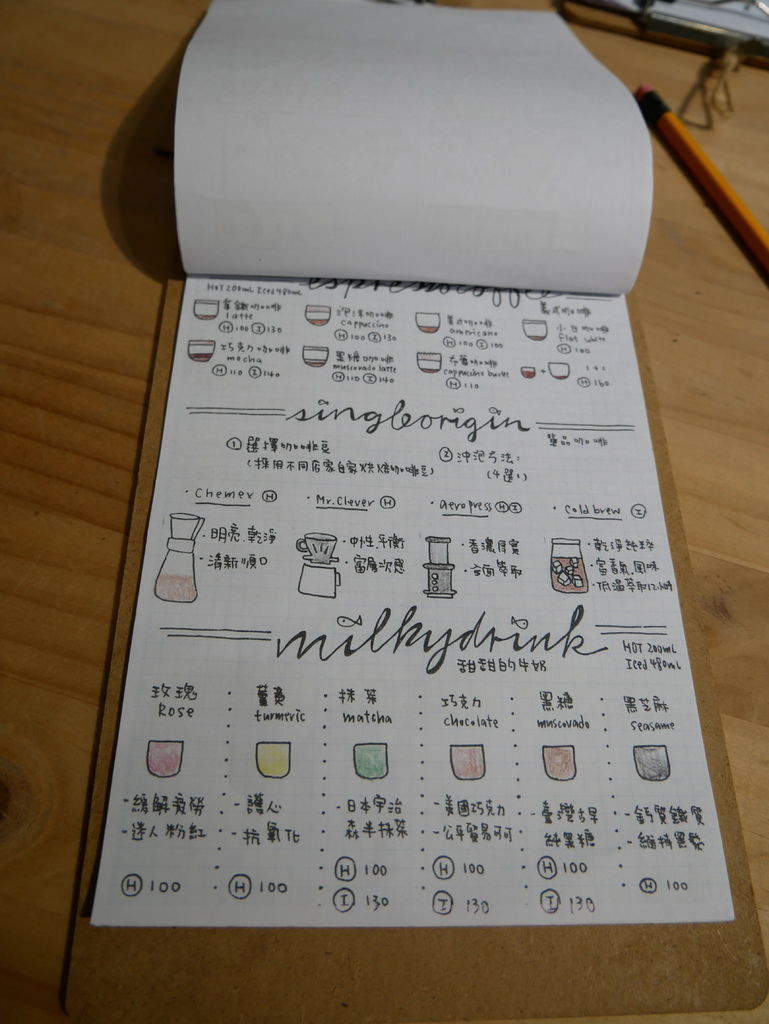 espressocoffee
HOT 200mL Iced 480mL
義式咖啡
拿鐵咖啡
latte
H 100 I 130
泡沫咖啡
cappuccino
H 100 I 130
美式咖啡
americano
H 100 I 100
小白咖啡
flat white
H 100
巧克力咖啡
mocha
H 110 I 140
黑糖咖啡
muscovado latte
H 110 I 140
咖啡
cappuccino
H 110
+
1+1
H 160
singleorigin
單品咖啡
① 選擇咖啡豆
(採用不同店家自家烘焙咖啡豆)
② 沖泡方法:
(4選1)
· Chemex H
· 明亮.乾淨
· 清新順口
· Mr. Clever H
· 中性.平衡
· 富層次感
· aeropress H I
· 香濃厚實
· 全面萃取
· Cold brew I
· 乾淨純粹
· 富香氣.風味
· 低溫萃取12小時
milkydrink
甜甜的牛奶
HOT 200mL
Iced 480mL
玫瑰
Rose
- 緩解疲勞
- 迷人粉紅
H 100
薑黃
turmeric
- 護心
- 抗氧化
H 100
抹茶
matcha
- 日本宇治
森半抹茶
H 100
I 130
巧克力
chocolate
- 美國巧克力
- 公平貿易可可
H 100
I 130
黑糖
muscovado
- 臺灣古早
純黑糖
H 100
I 130
黑芝麻
seasame
- 鈣質鐵質
- 維持黑髮
H 100